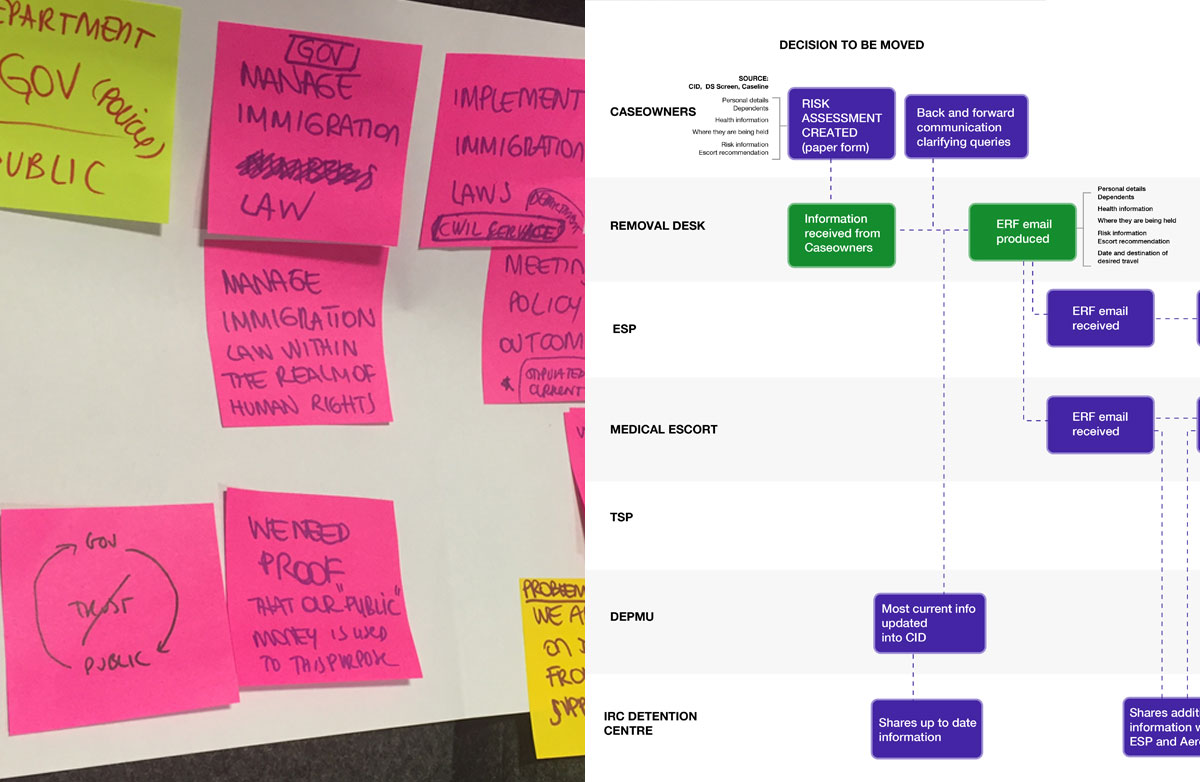 EPARTMENT
GOV (POLICY)
PUBLIC
GOV
MANAGE
IMMIGRATION
LAW
IMPLEMENT
IMMIGRATION
LAWS
CIVIL SERVICE
MANAGE
IMMIGRATION
LAW WITHIN
THE REALM OF
HUMAN RIGHTS
MEETIN
POLICY
OUTCOM
STIPULATED
CURRENT
GOV
TRUST
PUBLIC
WE NEED
PROOF
THAT OUR "PUBLIC"
MONEY IS USED
TO THIS PURPOSE
PROBLEM
WE A
ON
FRO
SUPP
DECISION TO BE MOVED
SOURCE:
CID, DS Screen, Caseline
CASEOWNERS
Personal details
Dependents
Health information
Where they are being held
Risk information
Escort recommendation
RISK
ASSESSMENT
CREATED
(paper form)
Back and forward
communication
clarifying queries
REMOVAL DESK
Information
received from
Caseowners
ERF email
produced
Personal details
Dependents
Health information
Where they are being held
Risk information
Escort recommendation
Date and destination of
desired travel
ESP
ERF email
received
MEDICAL ESCORT
ERF email
received
TSP
DEPMU
Most current info
updated
into CID
IRC DETENTION
CENTRE
Shares up to date
information
Shares addit
information w
ESP and Aer